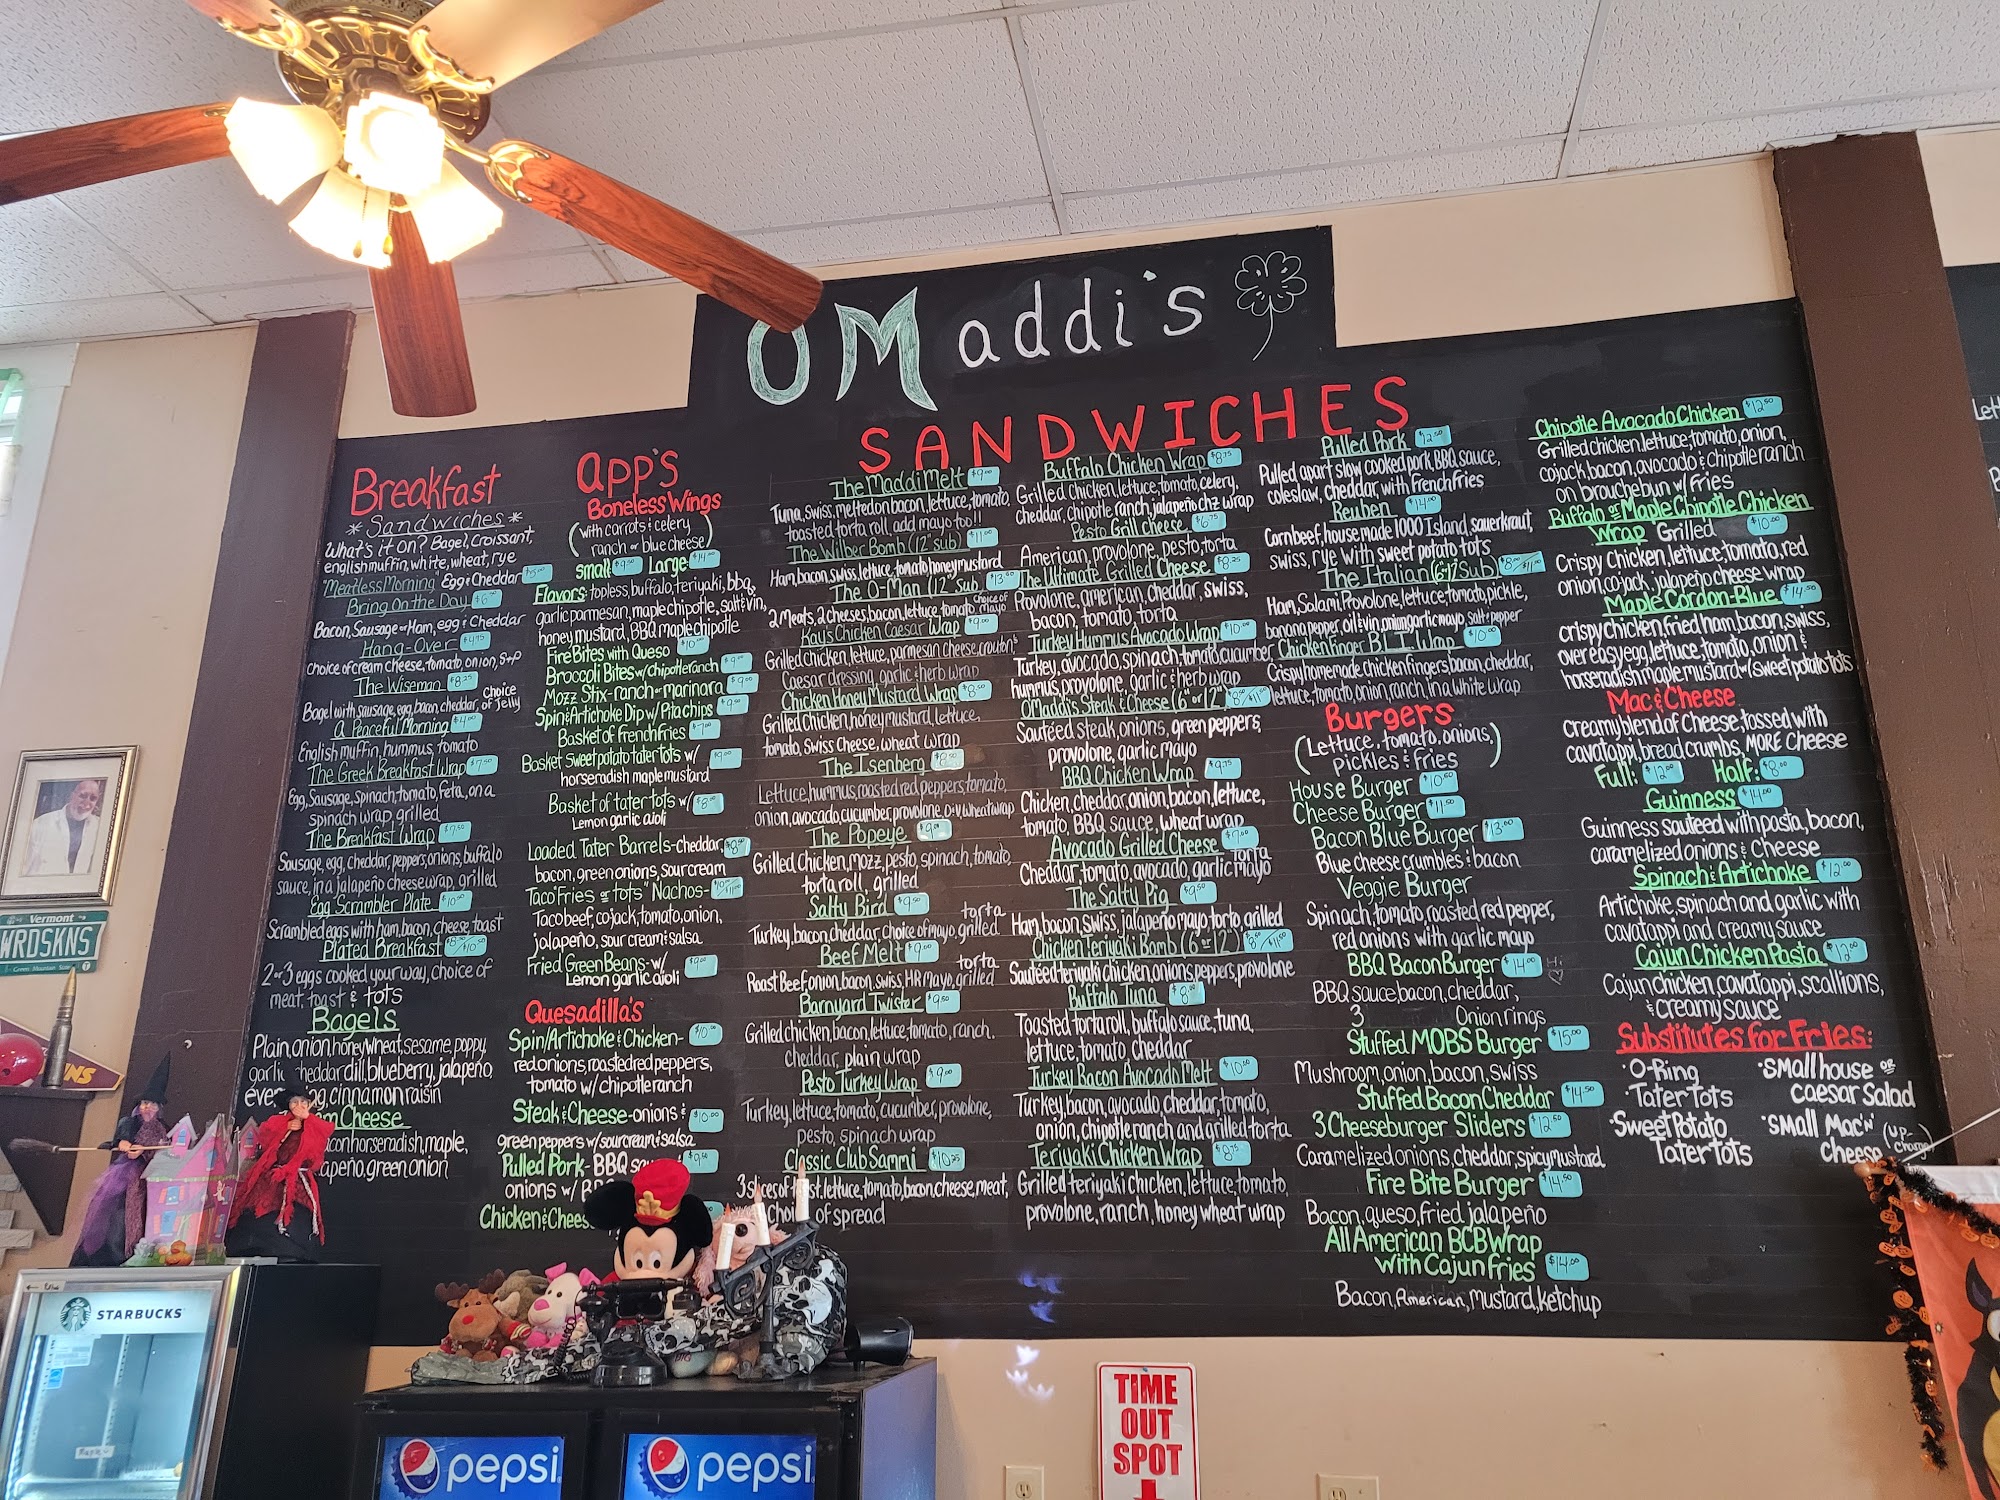 OMaddi's
Breakfast
* Sandwiches *
What's it on? Bagel, Croissant,
english muffin, white, wheat, rye
"Meatless Morning" Egg & Cheddar $5.00
Bring On the Day $6.50
Bacon, Sausage or Ham, egg & Cheddar
Hang-Over $4.95
Choice of cream cheese, tomato, onion, S+P
The Wiseman $8.25
Bagel with sausage, egg, bacon, cheddar, Choice of Jelly
A Peaceful Morning $4.00
English muffin, hummus, tomato
The Greek Breakfast Wrap $7.50
Egg, Sausage, Spinach, tomato, feta, on a
spinach wrap, grilled
The Breakfast Wrap $7.50
Sausage, egg, cheddar, peppers, onions, buffalo
sauce, in a jalapeño cheese wrap, grilled
Egg Scrambler Plate $10.00
Scrambled eggs with ham, bacon, cheese, toast
Plated Breakfast
2 or 3 eggs cooked your way, choice of
meat, toast & tots
Bagels
Plain, onion, honey wheat, sesame, poppy,
garlic cheddar dill, blueberry, jalapeño,
cinnamon raisin
Cheese
horseradish, maple,
green onion
App's
Boneless Wings
(with carrots & celery
ranch or blue cheese)
Small $9.50 Large $14.00
Flavors: topless, buffalo, teriyaki, bbq,
garlic parmesan, maple chipotle, salt & vin,
honey mustard, BBQ maple chipotle
Fire Bites with Queso $10.00
Broccoli Bites w/ Chipotle ranch $9.00
Mozz Stix-ranch or marinara $9.00
Spin & Artichoke Dip w/ Pita chips $9.50
Basket of french Fries $7.00
Basket Sweet potato tater tots w/ $9.00
horseradish maple mustard
Basket of tater tots w/ $8.00
Lemon garlic aioli
Loaded Tater Barrels-cheddar,
bacon, green onions, sour cream
Taco "Fries or Tots" Nachos-
Taco beef, cojack, tomato, onion,
jalapeño, sour cream & salsa
Fried Green Beans-w/ $9.00
Lemon garlic aioli
Quesadilla's
Spin/Artichoke & Chicken- $10.00
red onions, roasted red peppers,
tomato w/ chipotle ranch
Steak & Cheese-onions & $10.00
green peppers w/ sour cream & salsa
Pulled Pork- BBQ $9.50
onions w/
Chicken & Chees
SANDWICHES
The Maddi Melt $9.00
Tuna, Swiss, melted on bacon, lettuce, tomato
toasted torta roll, add mayo too!!
The Wilber Bomb (12" sub) $11.00
Ham, bacon, swiss, lettuce, tomato, honey mustard
The O-Man (12" Sub $13.00
2 Meats, 2 cheeses, bacon, lettuce, tomato, choice of mayo
Kay's Chicken Caesar Wrap $9.00
Grilled chicken, lettuce, parmesan cheese, crouton's
Caesar dressing, garlic & herb wrap
Chicken Honey Mustard Wrap $8.50
Grilled Chicken, honey mustard, lettuce,
tomato, Swiss Cheese, wheat wrap
The Isenberg $8.50
Lettuce, hummus, roasted red peppers, tomato,
onion, avocado, cucumber, provolone, O&V, wheat wrap
The Popeye $9.00
Grilled Chicken, mozz, pesto, spinach, tomato,
torta roll, grilled
Salty Bird $9.50
Turkey, bacon, cheddar, choice of mayo, grilled torta
Beef Melt $9.00
Roast Beef, onion, bacon, swiss, HR Mayo, grilled torta
Barnyard Twister $9.50
Grilled chicken, bacon, lettuce, tomato, ranch,
cheddar, plain wrap
Pesto Turkey Wrap $9.00
Turkey, lettuce, tomato, cucumber, provolone,
pesto, spinach wrap
Classic Club Sammi $10.25
3 slices of lettuce, tomato, bacon, cheese, meat,
of spread
Buffalo Chicken Wrap $8.75
Grilled chicken, lettuce, tomato, celery,
cheddar, chipotle ranch, jalapeño chz wrap
Pesto Grill Cheese $6.75
American, provolone, pesto, torta
The Ultimate Grilled Cheese $8.25
Provolone, american, cheddar, swiss,
bacon, tomato, torta
Turkey Hummus Avocado Wrap $10.00
Turkey, avocado, spinach, tomato, cucumber
hummus, provolone, garlic & herb wrap
OMaddi's Steak & Cheese (6" or 12")
Sautéed steak, onions, green peppers,
provolone, garlic mayo
BBQ Chicken Wrap $9.75
Chicken, cheddar, onion, bacon, lettuce,
tomato, BBQ sauce, wheat wrap
Avocado Grilled Cheese $7.00
Cheddar, tomato, avocado, garlic mayo torta
The Salty Pig $9.50
Ham, bacon, swiss, jalapeño mayo, torta, grilled
Chicken Teriyaki Bomb (6" or 12")
Sautéed teriyaki chicken, onions, peppers, provolone
Buffalo Tuna $8.00
Toasted torta roll, buffalo sauce, tuna,
lettuce, tomato, cheddar
Turkey Bacon Avocado Melt $10.00
Turkey, bacon, avocado, cheddar, tomato,
onion, chipotle ranch and grilled torta
Teriyaki Chicken Wrap $8.75
Grilled teriyaki chicken, lettuce, tomato,
provolone, ranch, honey wheat wrap
Pulled Pork $12.50
Pulled apart slow cooked pork, BBQ sauce,
coleslaw, cheddar, with french fries
Reuben $14.00
Corn beef, house made 1000 Island, sauerkraut,
swiss, rye with sweet potato tots
The Italian (6"-12" Sub)
Ham, Salami, Provolone, lettuce, tomato, pickle,
banana pepper, oil & vin, onion, garlic mayo, salt & pepper
Chicken finger BLT Wrap $10.00
Crispy homemade chicken fingers, bacon, cheddar,
lettuce, tomato, onion, ranch, in a white wrap
Burgers
(Lettuce, tomato, onions,
pickles & fries)
House Burger
Cheese Burger $11.50
Bacon Blue Burger $13.00
Blue cheese crumbles & bacon
Veggie Burger
Spinach, tomato, roasted red pepper,
red onions with garlic mayo
BBQ Bacon Burger $14.00 Hi
BBQ sauce, bacon, cheddar,
3 Onion rings
Stuffed MOBS Burger $15.00
Mushroom, onion, bacon, swiss
Stuffed Bacon Cheddar $14.50
3 Cheeseburger Sliders $12.50
Caramelized onions, cheddar, spicy mustard
Fire Bite Burger $14.50
Bacon, queso, fried jalapeño
All American BCB Wrap
with Cajun fries $14.00
Bacon, American, Mustard, ketchup
Chipotle Avocado Chicken $12.50
Grilled chicken, lettuce, tomato, onion,
cojack, bacon, avocado & chipotle ranch
on brouche bun w/ fries
Buffalo or Maple Chipotle Chicken
Wrap "Grilled $10.00
Crispy Chicken, lettuce, tomato, red
onion, cojack, jalapeño cheese wrap
Maple Cordon-Blue $14.50
crispy chicken, fried ham, bacon, swiss,
over easy egg, lettuce, tomato, onion &
horseradish maple mustard w/ sweet potato tots
Mac & Cheese
Creamy blend of cheese, tossed with
cavatappi, bread crumbs, MORE Cheese
Full: $12.00 Half: $8.00
Guinness $14.00
Guinness sauteed with pasta, bacon,
caramelized onions & cheese
Spinach & Artichoke $12.00
Artichoke, spinach and garlic with
cavatappi and creamy sauce
Cajun Chicken Pasta $12.00
Cajun chicken, cavatappi, scallions,
& creamy sauce
Substitutes for Fries:
·O-Ring
·Tater Tots
·Sweet Potato
Tater Tots
·Small house or
Caesar Salad
·Small Mac'n'
Cheese (up-charge)
Vermont
WRDSKNS
Green Mountain State
STARBUCKS
pepsi
pepsi
TIME
OUT
SPOT